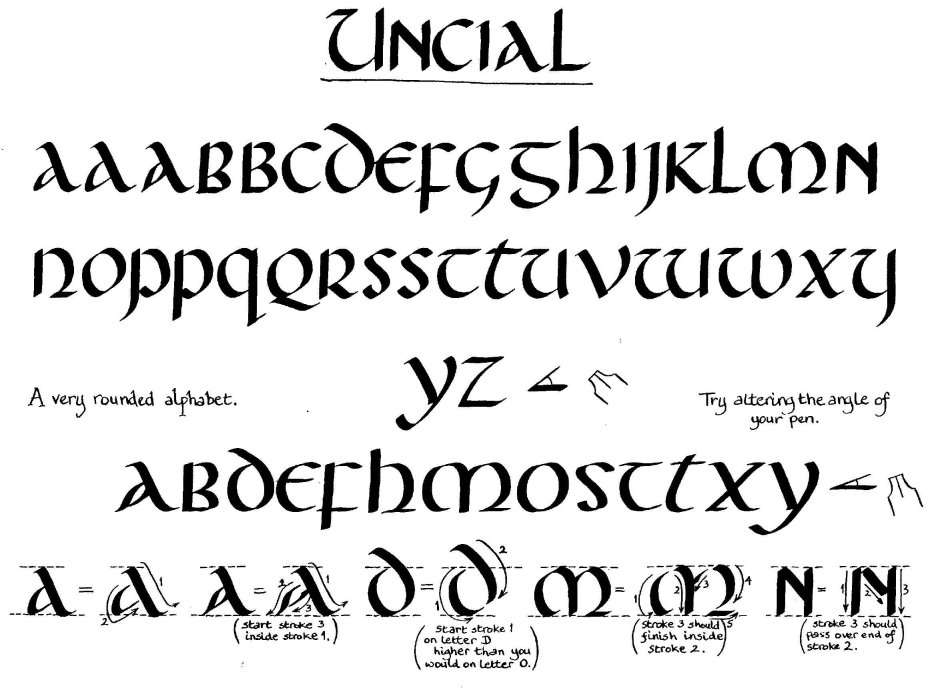 UNCIAL
AAABBCDEFGGHIJKLMN
NOPPQQRSSTTUVWWXY
YZ
A very rounded alphabet.
Try altering the angle of
your pen.
ABDEFHMOSTTXY
A = A 1 2
A = A 1 2 3
(start stroke 3
inside stroke 1.)
D = D 1 2
(start stroke 1
on letter D
higher than you
would on letter O.)
M = M 1 2 3 4 5
(stroke 3 should
finish inside
stroke 2.)
N = N 1 2 3
(stroke 3 should
pass over end of
stroke 2.)